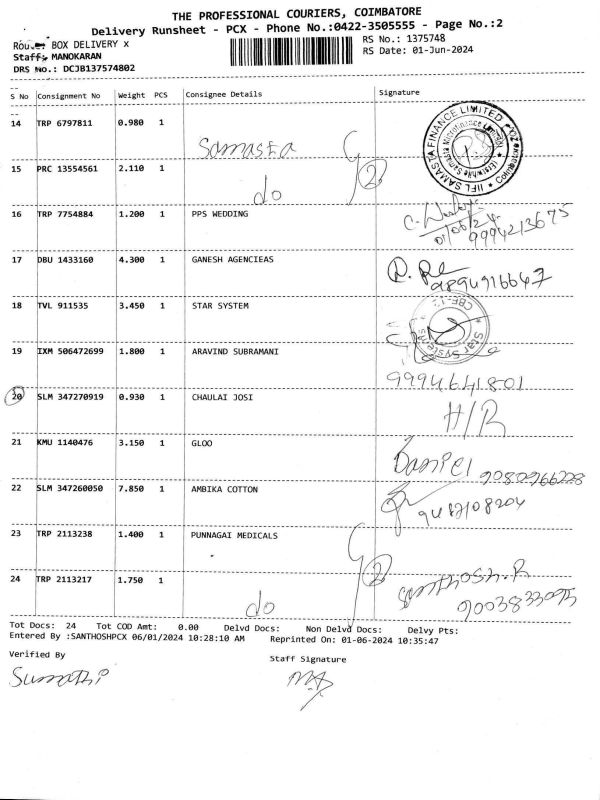 THE PROFESSIONAL COURIERS, COIMBATORE
Delivery Runsheet - PCX - Phone No.:0422-3505555 - Page No.:2
BOX DELIVERY x
RS No.: 1375748
Staff: MANOKARAN
RS Date: 01-Jun-2024
DRS No.: DCJB137574802
S No Consignment No Weight PCS Consignee Details Signature
14 TRP 6797811 0.980 1 Samasta
IIFL SAMASTA FINANCE LIMITED
15 PRC 13554561 2.110 1 do 2
16 TRP 7754884 1.200 1 PPS WEDDING
01/06/24
9994213675
17 DBU 1433160 4.300 1 GANESH AGENCIEAS
9894916647
18 TVL 911535 3.450 1 STAR SYSTEM
Star Systems
19 IXM 506472699 1.800 1 ARAVIND SUBRAMANI
9994641801
20 SLM 347270919 0.930 1 CHAULAI JOSI
H/R
21 KMU 1140476 3.150 1 GLOO
Daniel 9080966228
22 SLM 347260050 7.850 1 AMBIKA COTTON
9487108204
23 TRP 2113238 1.400 1 PUNNAGAI MEDICALS
24 TRP 2113217 1.750 1 do 2
Tot Docs: 24 Tot COD Amt: 0.00 Delvd Docs: Non Delvd Docs: Delvy Pts:
Entered By :SANTHOSHPCX 06/01/2024 10:28:10 AM Reprinted On: 01-06-2024 10:35:47
Verified By
Staff Signature
Sumathi